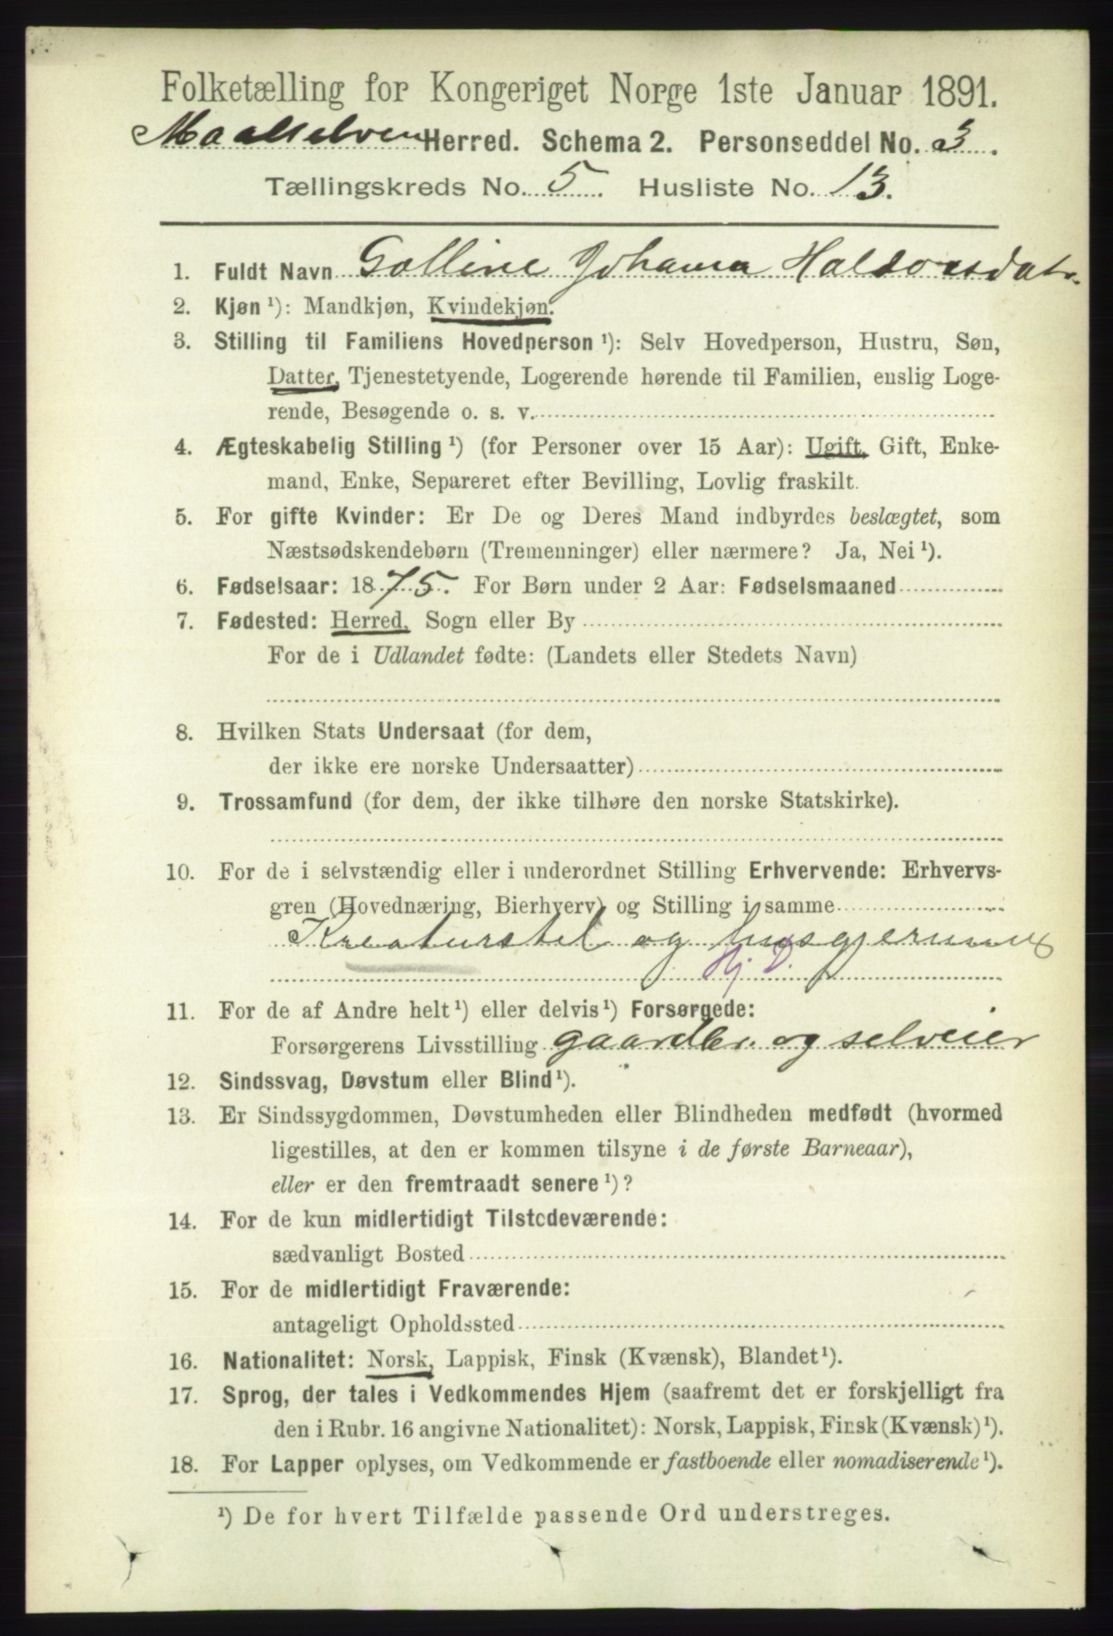 Folketælling for Kongeriget Norge 1ste Januar 1891.
Maalselven Herred. Schema 2. Personseddel No. 3.
Tællingskreds No. 5. Husliste No. 13.
1. Fuldt Navn Golline Johanna Haldorsdatr.
2. Kjøn¹): Mandkjøn, Kvindekjøn.
3. Stilling til Familiens Hovedperson¹): Selv Hovedperson, Hustru, Søn,
Datter, Tjenestetyende, Logerende hørende til Familien, enslig Loge-
rende, Besøgende o. s. v.
4. Ægteskabelig Stilling¹) (for Personer over 15 Aar): Ugift, Gift, Enke-
mand, Enke, Separeret efter Bevilling, Lovlig fraskilt.
5. For gifte Kvinder: Er De og Deres Mand indbyrdes beslægtet, som
Næstsødskendebørn (Tremenninger) eller nærmere? Ja, Nei¹).
6. Fødselsaar: 1875. For Børn under 2 Aar: Fødselsmaaned
7. Fødested: Herred, Sogn eller By
For de i Udlandet fødte: (Landets eller Stedets Navn)
8. Hvilken Stats Undersaat (for dem,
der ikke ere norske Undersaatter)
9. Trossamfund (for dem, der ikke tilhøre den norske Statskirke).
10. For de i selvstændig eller i underordnet Stilling Erhvervende: Erhvervs-
gren (Hovednæring, Bierhverv) og Stilling i samme
Kreaturstel og husgjerning
Hj. D.
11. For de af Andre helt¹) eller delvis¹) Forsørgede:
Forsørgerens Livsstilling gaardbr. og selveier
12. Sindssvag, Døvstum eller Blind¹).
13. Er Sindssygdommen, Døvstumheden eller Blindheden medfødt (hvormed
ligestilles, at den er kommen tilsyne i de første Barneaar),
eller er den fremtraadt senere¹)?
14. For de kun midlertidigt Tilstedeværende:
sædvanligt Bosted
15. For de midlertidigt Fraværende:
antageligt Opholdssted
16. Nationalitet: Norsk, Lappisk, Finsk (Kvænsk), Blandet¹).
17. Sprog, der tales i Vedkommendes Hjem (saafremt det er forskjelligt fra
den i Rubr. 16 angivne Nationalitet): Norsk, Lappisk, Finsk (Kvænsk)¹).
18. For Lapper oplyses, om Vedkommende er fastboende eller nomadiserende¹).
¹) De for hvert Tilfælde passende Ord understreges.